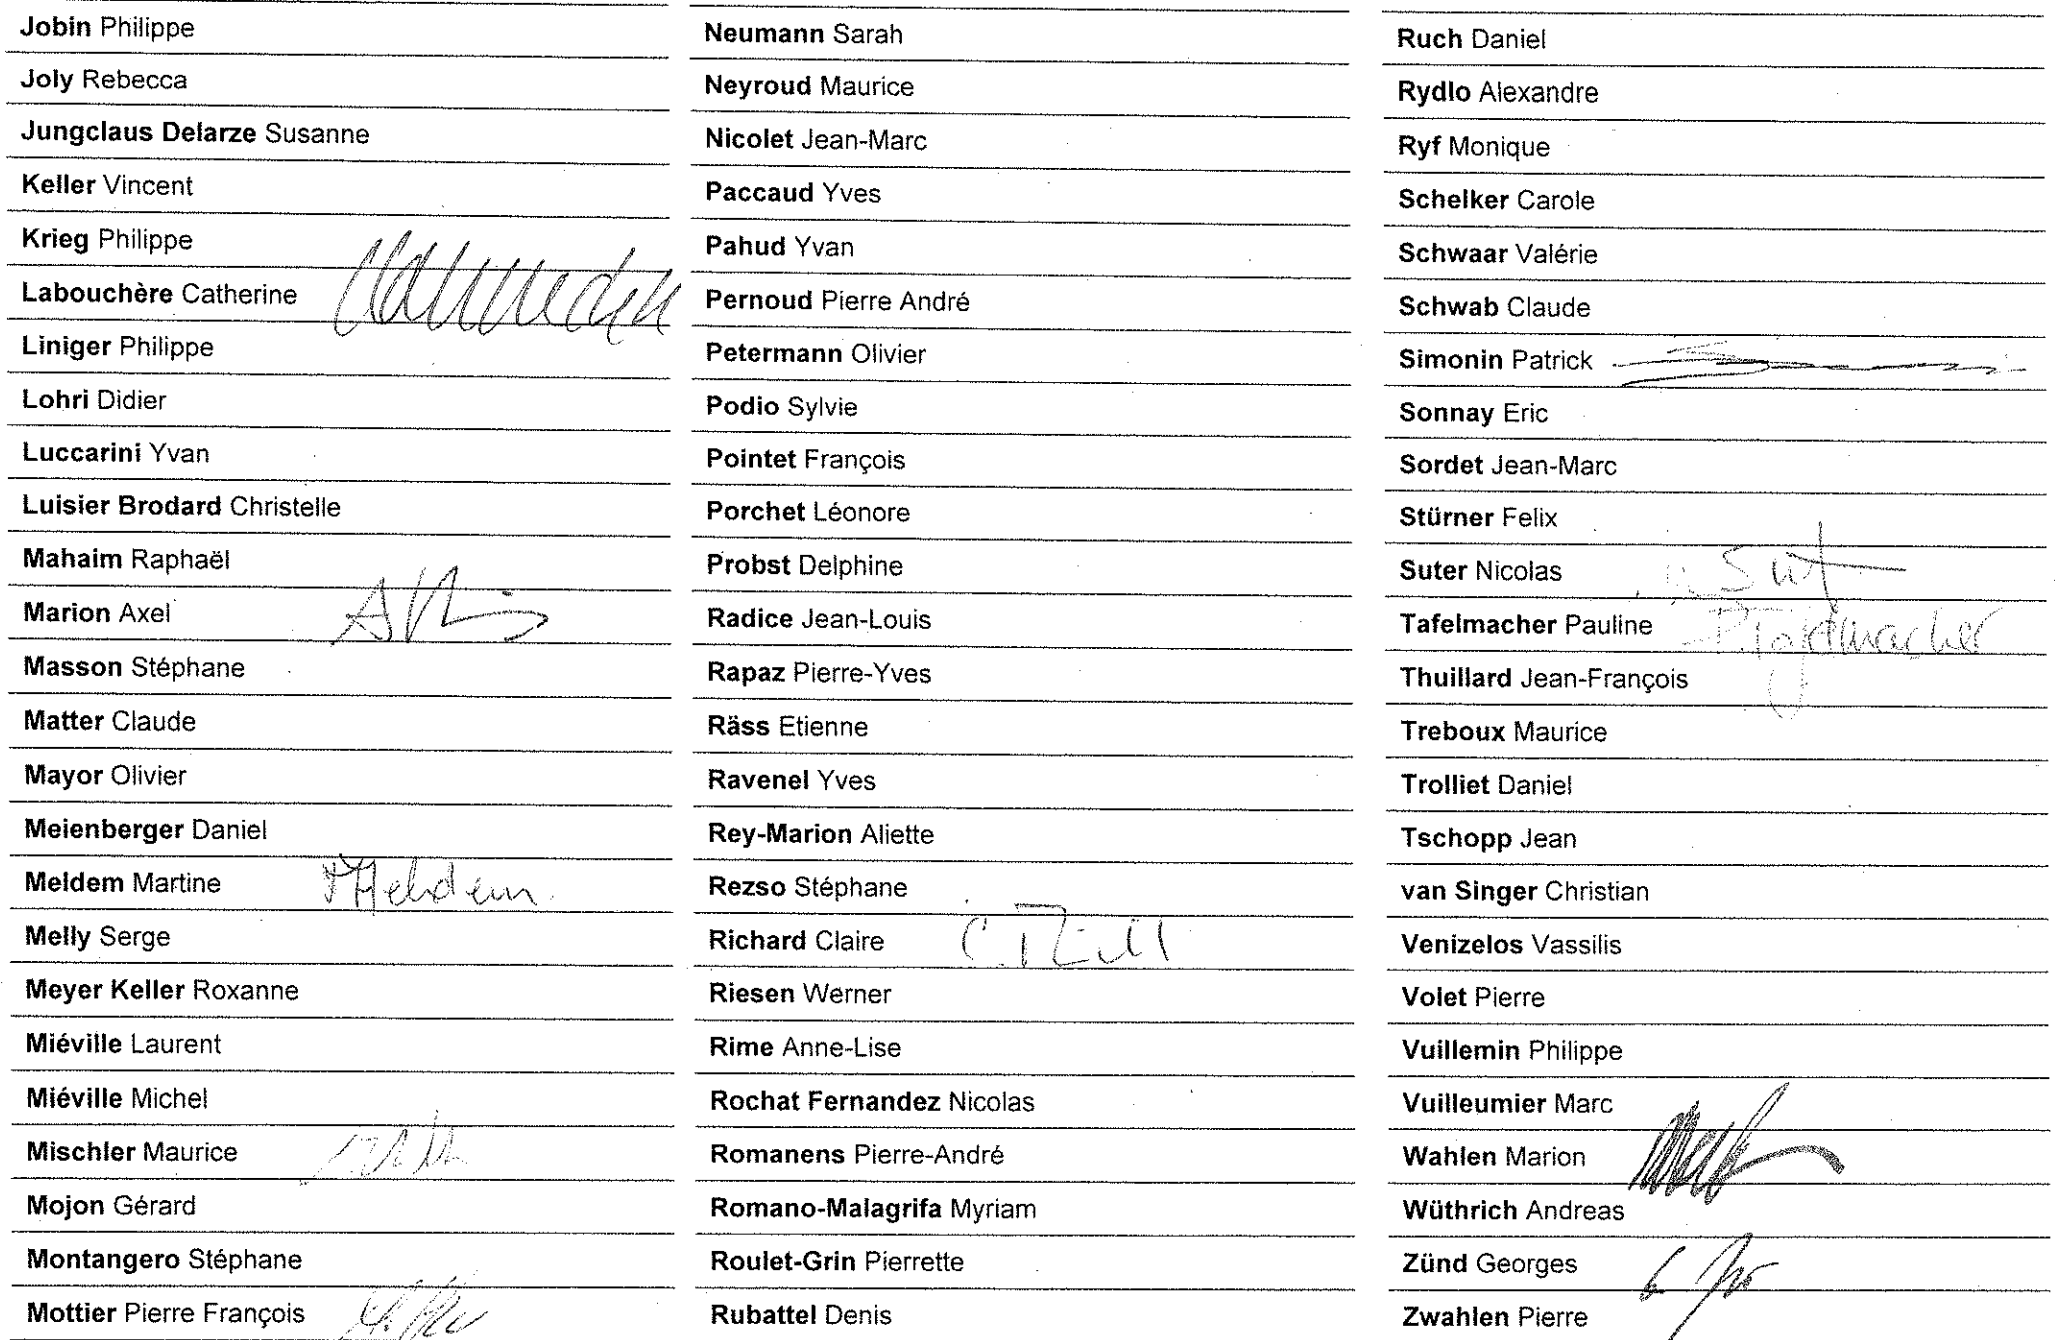 Jobin Philippe
Joly Rebecca
Jungclaus Delarze Susanne
Keller Vincent
Krieg Philippe
Labouchère Catherine
Liniger Philippe
Lohri Didier
Luccarini Yvan
Luisier Brodard Christelle
Mahaim Raphaël
Marion Axel
Masson Stéphane
Matter Claude
Mayor Olivier
Meienberger Daniel
Meldem Martine
Melly Serge
Meyer Keller Roxanne
Miéville Laurent
Miéville Michel
Mischler Maurice
Mojon Gérard
Montangero Stéphane
Mottier Pierre François
Neumann Sarah
Neyroud Maurice
Nicolet Jean-Marc
Paccaud Yves
Pahud Yvan
Pernoud Pierre André
Petermann Olivier
Podio Sylvie
Pointet François
Porchet Léonore
Probst Delphine
Radice Jean-Louis
Rapaz Pierre-Yves
Räss Etienne
Ravenel Yves
Rey-Marion Aliette
Rezso Stéphane
Richard Claire
Riesen Werner
Rime Anne-Lise
Rochat Fernandez Nicolas
Romanens Pierre-André
Romano-Malagrifa Myriam
Roulet-Grin Pierrette
Rubattel Denis
Ruch Daniel
Rydlo Alexandre
Ryf Monique
Schelker Carole
Schwaar Valérie
Schwab Claude
Simonin Patrick
Sonnay Eric
Sordet Jean-Marc
Stürner Felix
Suter Nicolas
Tafelmacher Pauline P. Tafelmacher
Thuillard Jean-François
Treboux Maurice
Trolliet Daniel
Tschopp Jean
van Singer Christian
Venizelos Vassilis
Volet Pierre
Vuillemin Philippe
Vuilleumier Marc
Wahlen Marion
Wüthrich Andreas
Zünd Georges
Zwahlen Pierre